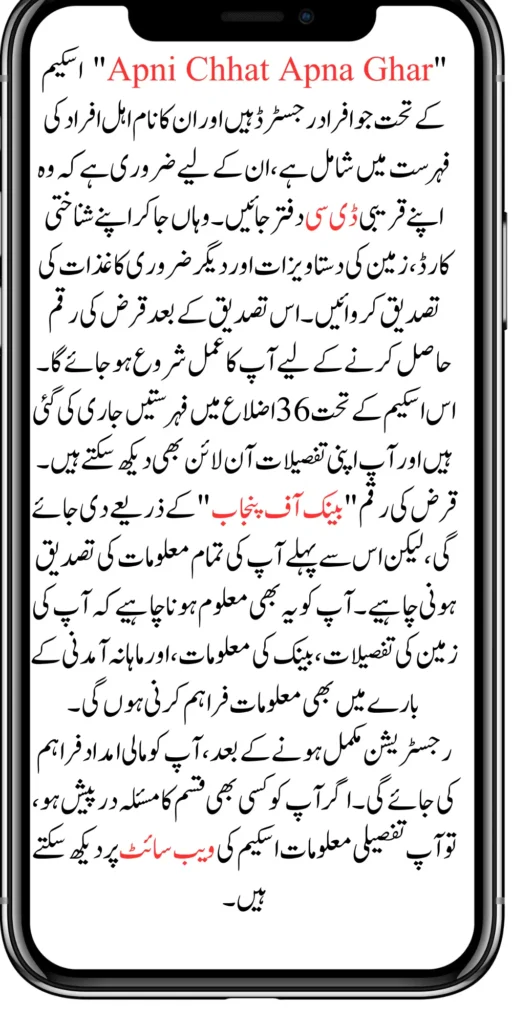 "Apni Chhat Apna Ghar" اسکیم
کے تحت جو افراد رجسٹرڈ ہیں اور ان کا نام اہل افراد کی
فہرست میں شامل ہے، ان کے لیے ضروری ہے کہ وہ
اپنے قریبی ڈی سی دفتر جائیں۔ وہاں جا کر اپنے شناختی
کارڈ، زمین کی دستاویزات اور دیگر ضروری کاغذات کی
تصدیق کروائیں۔ اس تصدیق کے بعد قرض کی رقم
حاصل کرنے کے لیے آپ کا عمل شروع ہو جائے گا۔
اس اسکیم کے تحت 36 اضلاع میں فہرستیں جاری کی گئی
ہیں اور آپ اپنی تفصیلات آن لائن بھی دیکھ سکتے ہیں۔
قرض کی رقم "بینک آف پنجاب" کے ذریعے دی جائے
گی، لیکن اس سے پہلے آپ کی تمام معلومات کی تصدیق
ہونی چاہیے۔ آپ کو یہ بھی معلوم ہونا چاہیے کہ آپ کی
زمین کی تفصیلات، بینک کی معلومات، اور ماہانہ آمدنی کے
بارے میں بھی معلومات فراہم کرنی ہوں گی۔
رجسٹریشن مکمل ہونے کے بعد، آپ کو مالی امداد فراہم
کی جائے گی۔ اگر آپ کو کسی بھی قسم کا مسئلہ درپیش ہو،
تو آپ تفصیلی معلومات اسکیم کی ویب سائٹ پر دیکھ سکتے
ہیں۔